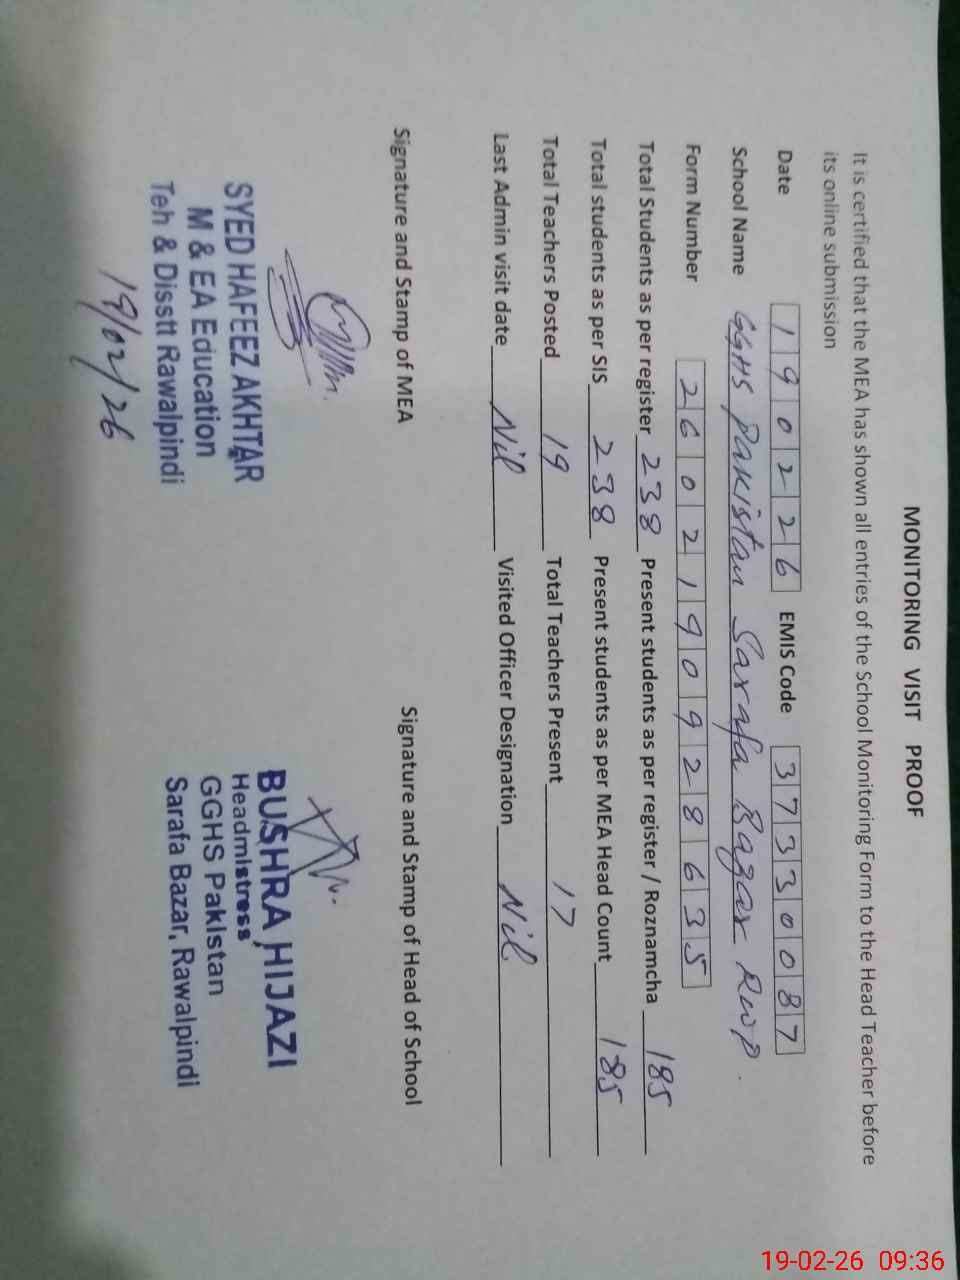 MONITORING VISIT PROOF
It is certified that the MEA has shown all entries of the School Monitoring Form to the Head Teacher before
its online submission
Date 190226 EMIS Code 37330087
School Name GGHS Pakistan Sarafa Bazar Rwp.
Form Number 2602190928635
Total Students as per register 238 Present students as per register / Roznamcha 185
Total students as per SIS 238 Present students as per MEA Head Count 185
Total Teachers Posted 19 Total Teachers Present 17
Last Admin visit date Nil Visited Officer Designation Nil
Signature and Stamp of MEA Signature and Stamp of Head of School
SYED HAFEEZ AKHTAR
M & EA Education
Teh & Disstt Rawalpindi
19/02/26
BUSHRA HIJAZI
Headmistress
GGHS Pakistan
Sarafa Bazar, Rawalpindi
19-02-26 09:36